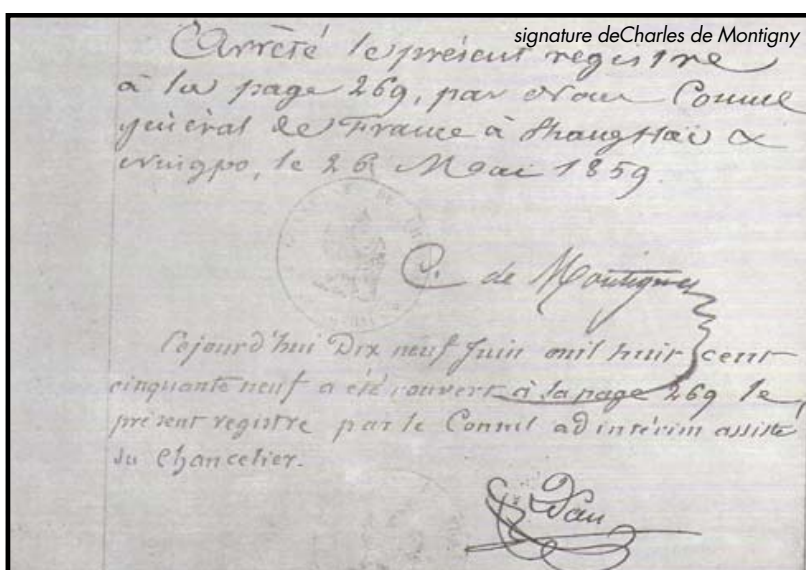 signature deCharles de Montigny
Arrêté le présent registre
à la page 269, par Nous Consul
général de France à Shanghai &
Ningpo, le 26 Mai 1859.
C. de Montigny
Cejourd'hui Dix neuf Juin mil huit cent
cinquante neuf a été rouvert à la page 269 le
présent registre par le Consul ad intérim assisté
du Chancelier.